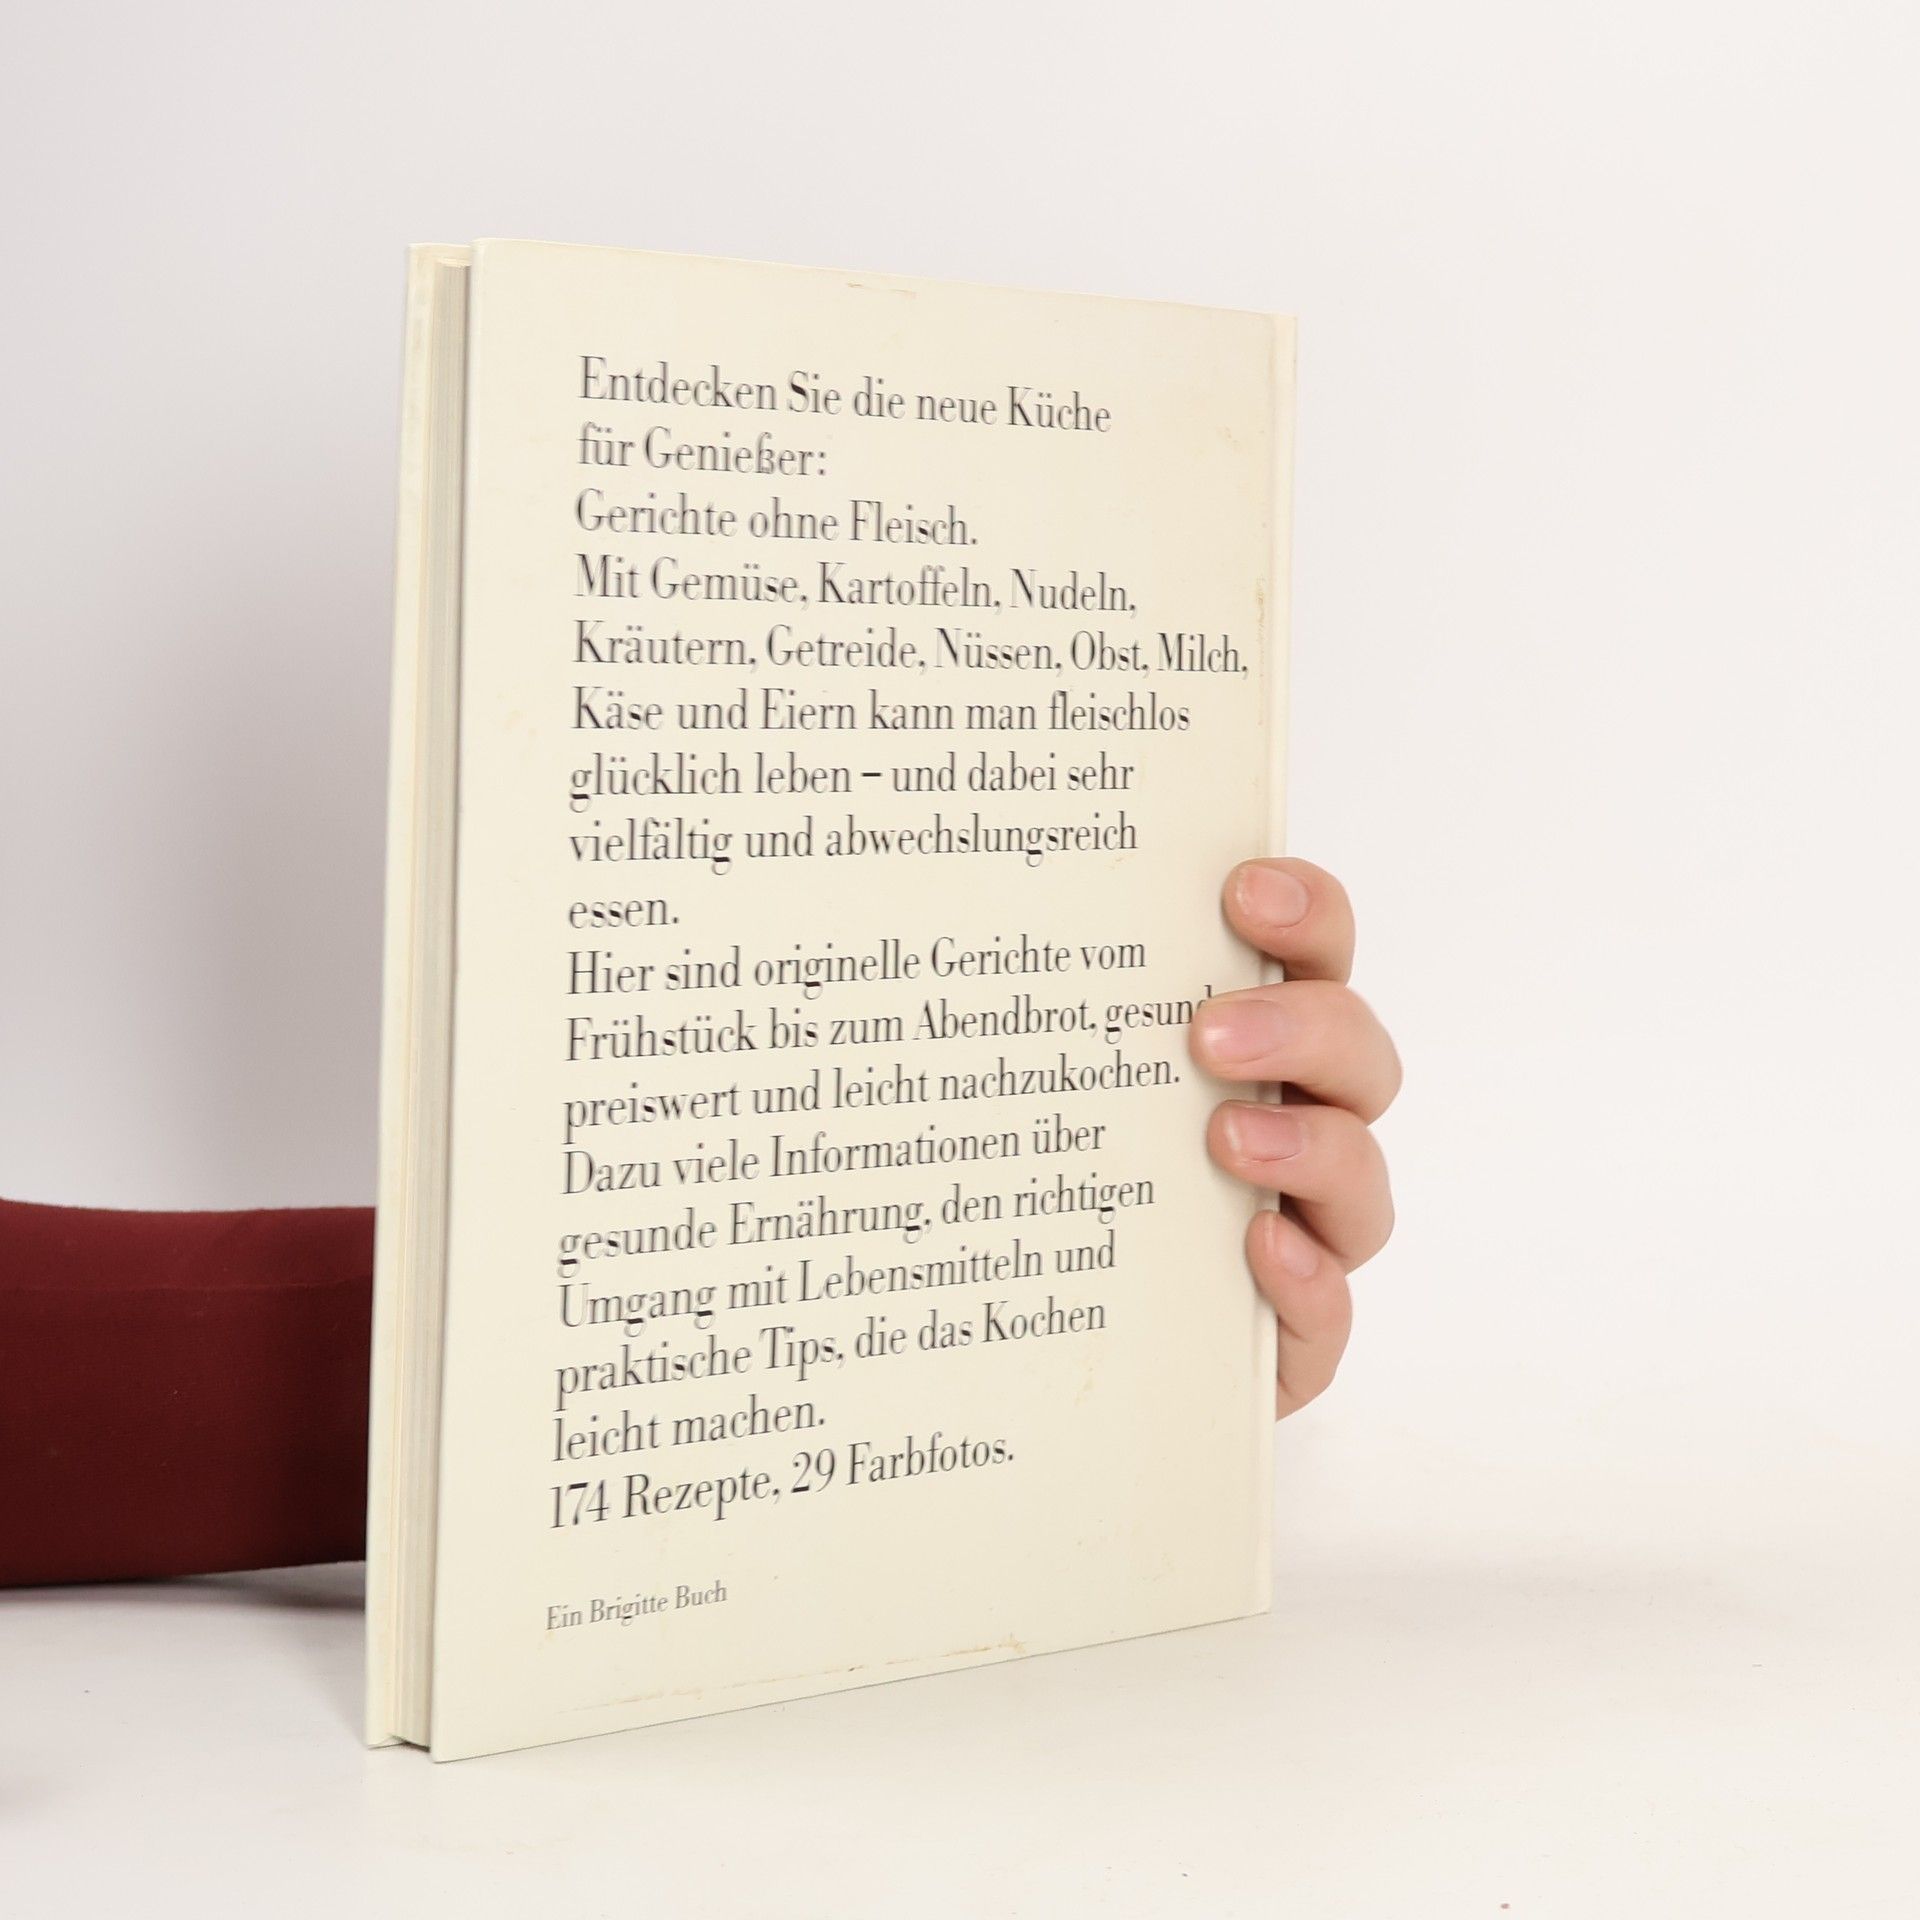 Entdecken Sie die neue Küche
für Genießer:
Gerichte ohne Fleisch.
Mit Gemüse, Kartoffeln, Nudeln,
Kräutern, Getreide, Nüssen, Obst, Milch,
Käse und Eiern kann man fleischlos
glücklich leben – und dabei sehr
vielfältig und abwechslungsreich
essen.
Hier sind originelle Gerichte vom
Frühstück bis zum Abendbrot, gesund
preiswert und leicht nachzukochen.
Dazu viele Informationen über
gesunde Ernährung, den richtigen
Umgang mit Lebensmitteln und
praktische Tips, die das Kochen
leicht machen.
174 Rezepte, 29 Farbfotos.
Ein Brigitte Buch